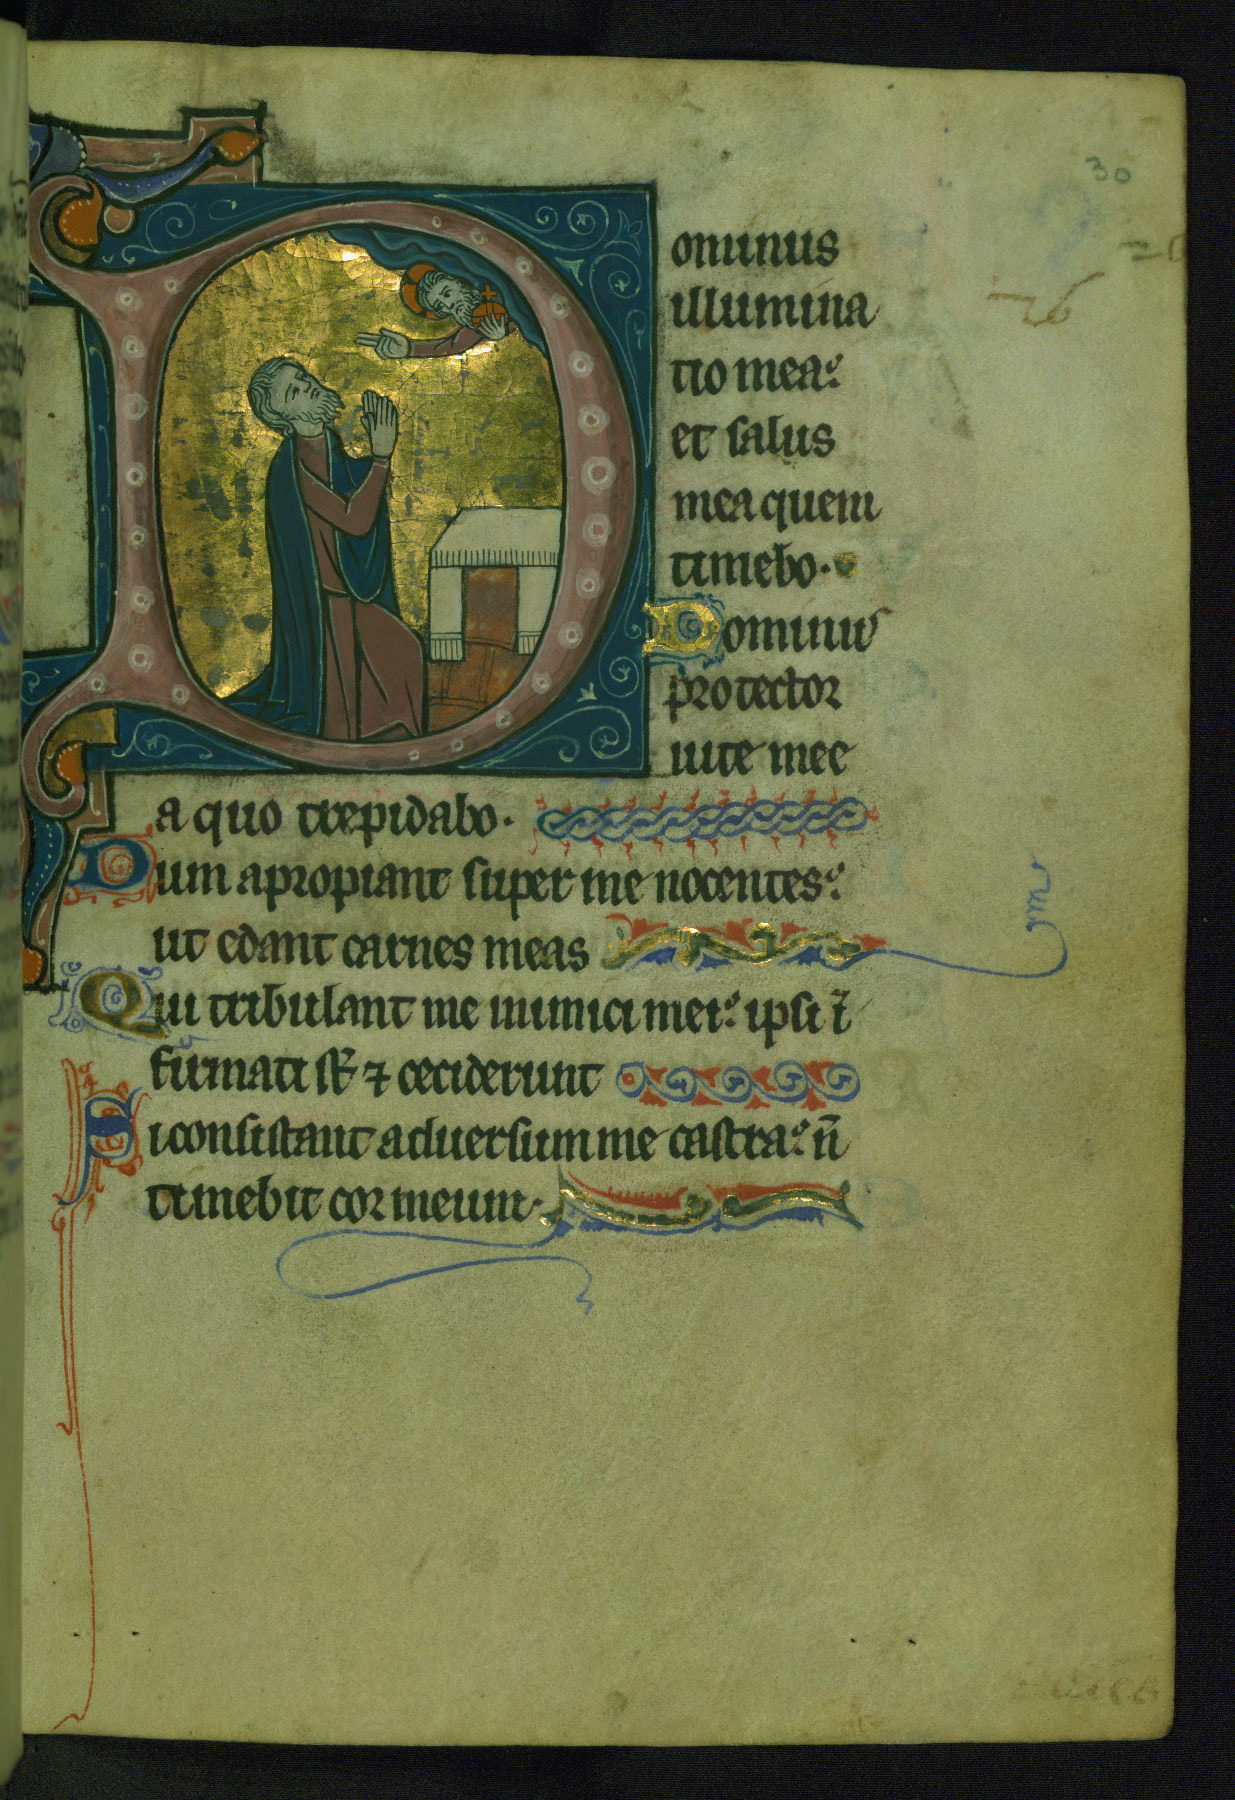 30
26
Dominus
illumina
tio mea:
et salus
mea quem
timebo.
Dominus
protector
uite mee
a quo trepidabo.
Dum apropiant super me nocentes:
ut edant carnes meas
Qui tribulant me inimici mei: ipsi ī
firmati sт̄ ⁊ ceciderunt
Si consistant aduersum me castra: n̄
timebit cor meum.